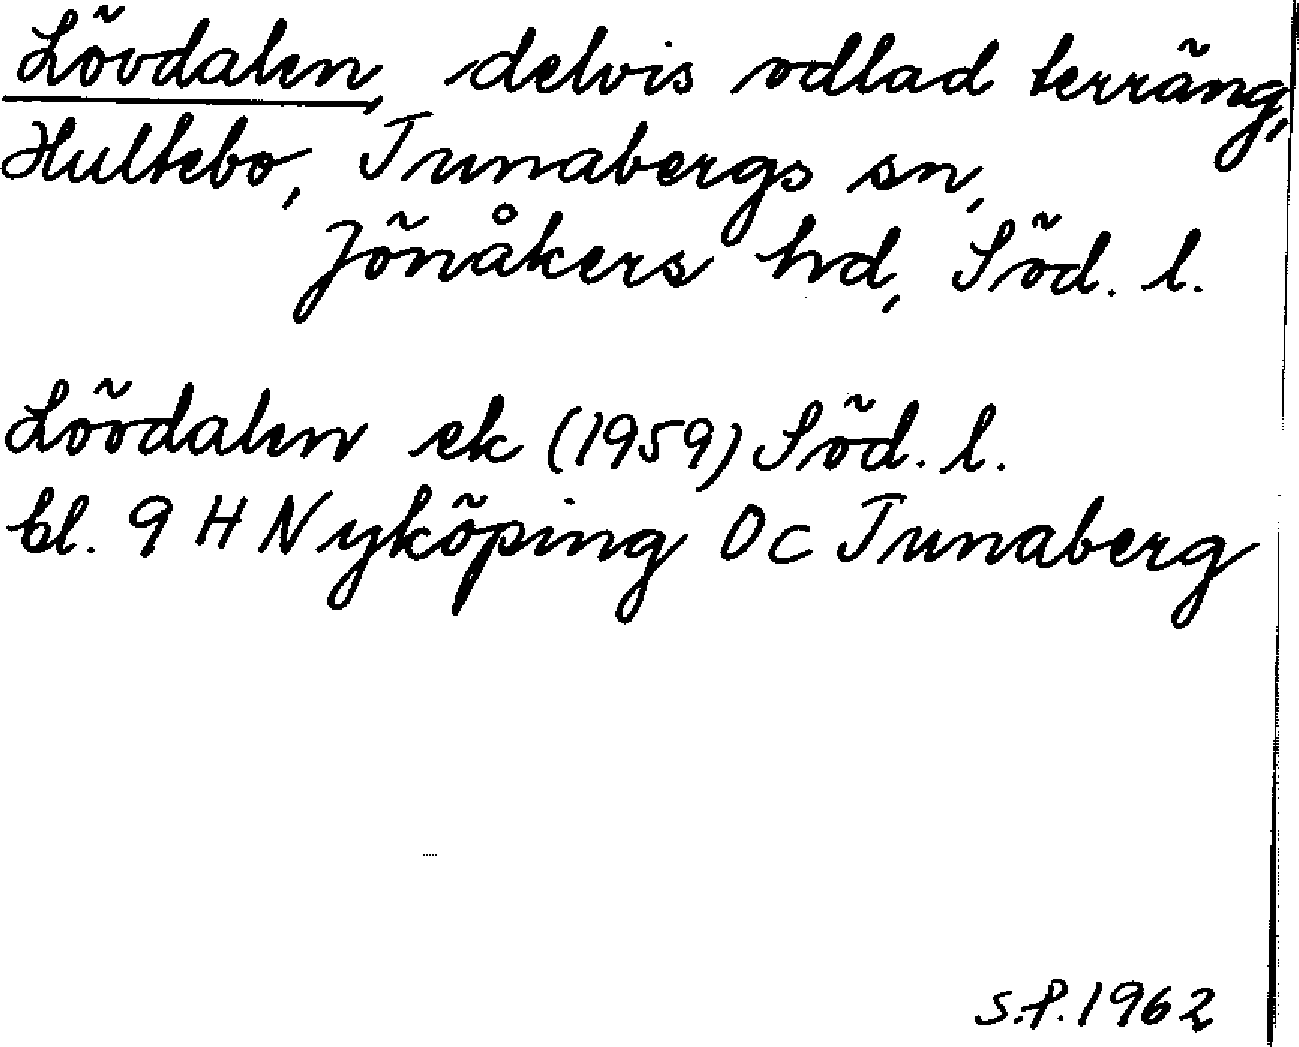 Lövdalen, delvis odlad terräng,
Hultebo, Tunabergs sn,
Jönåkers hd, Söd. l.
Lövdalen ek (1959) Söd. l.
bl. 9 H Nyköping Oc Tunaberg
S.P. 1962